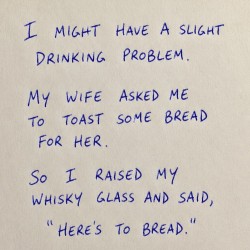 I MIGHT HAVE A SLIGHT
DRINKING PROBLEM.
MY WIFE ASKED ME
TO TOAST SOME BREAD
FOR HER.
SO I RAISED MY
WHISKY GLASS AND SAID,
"HERE'S TO BREAD."